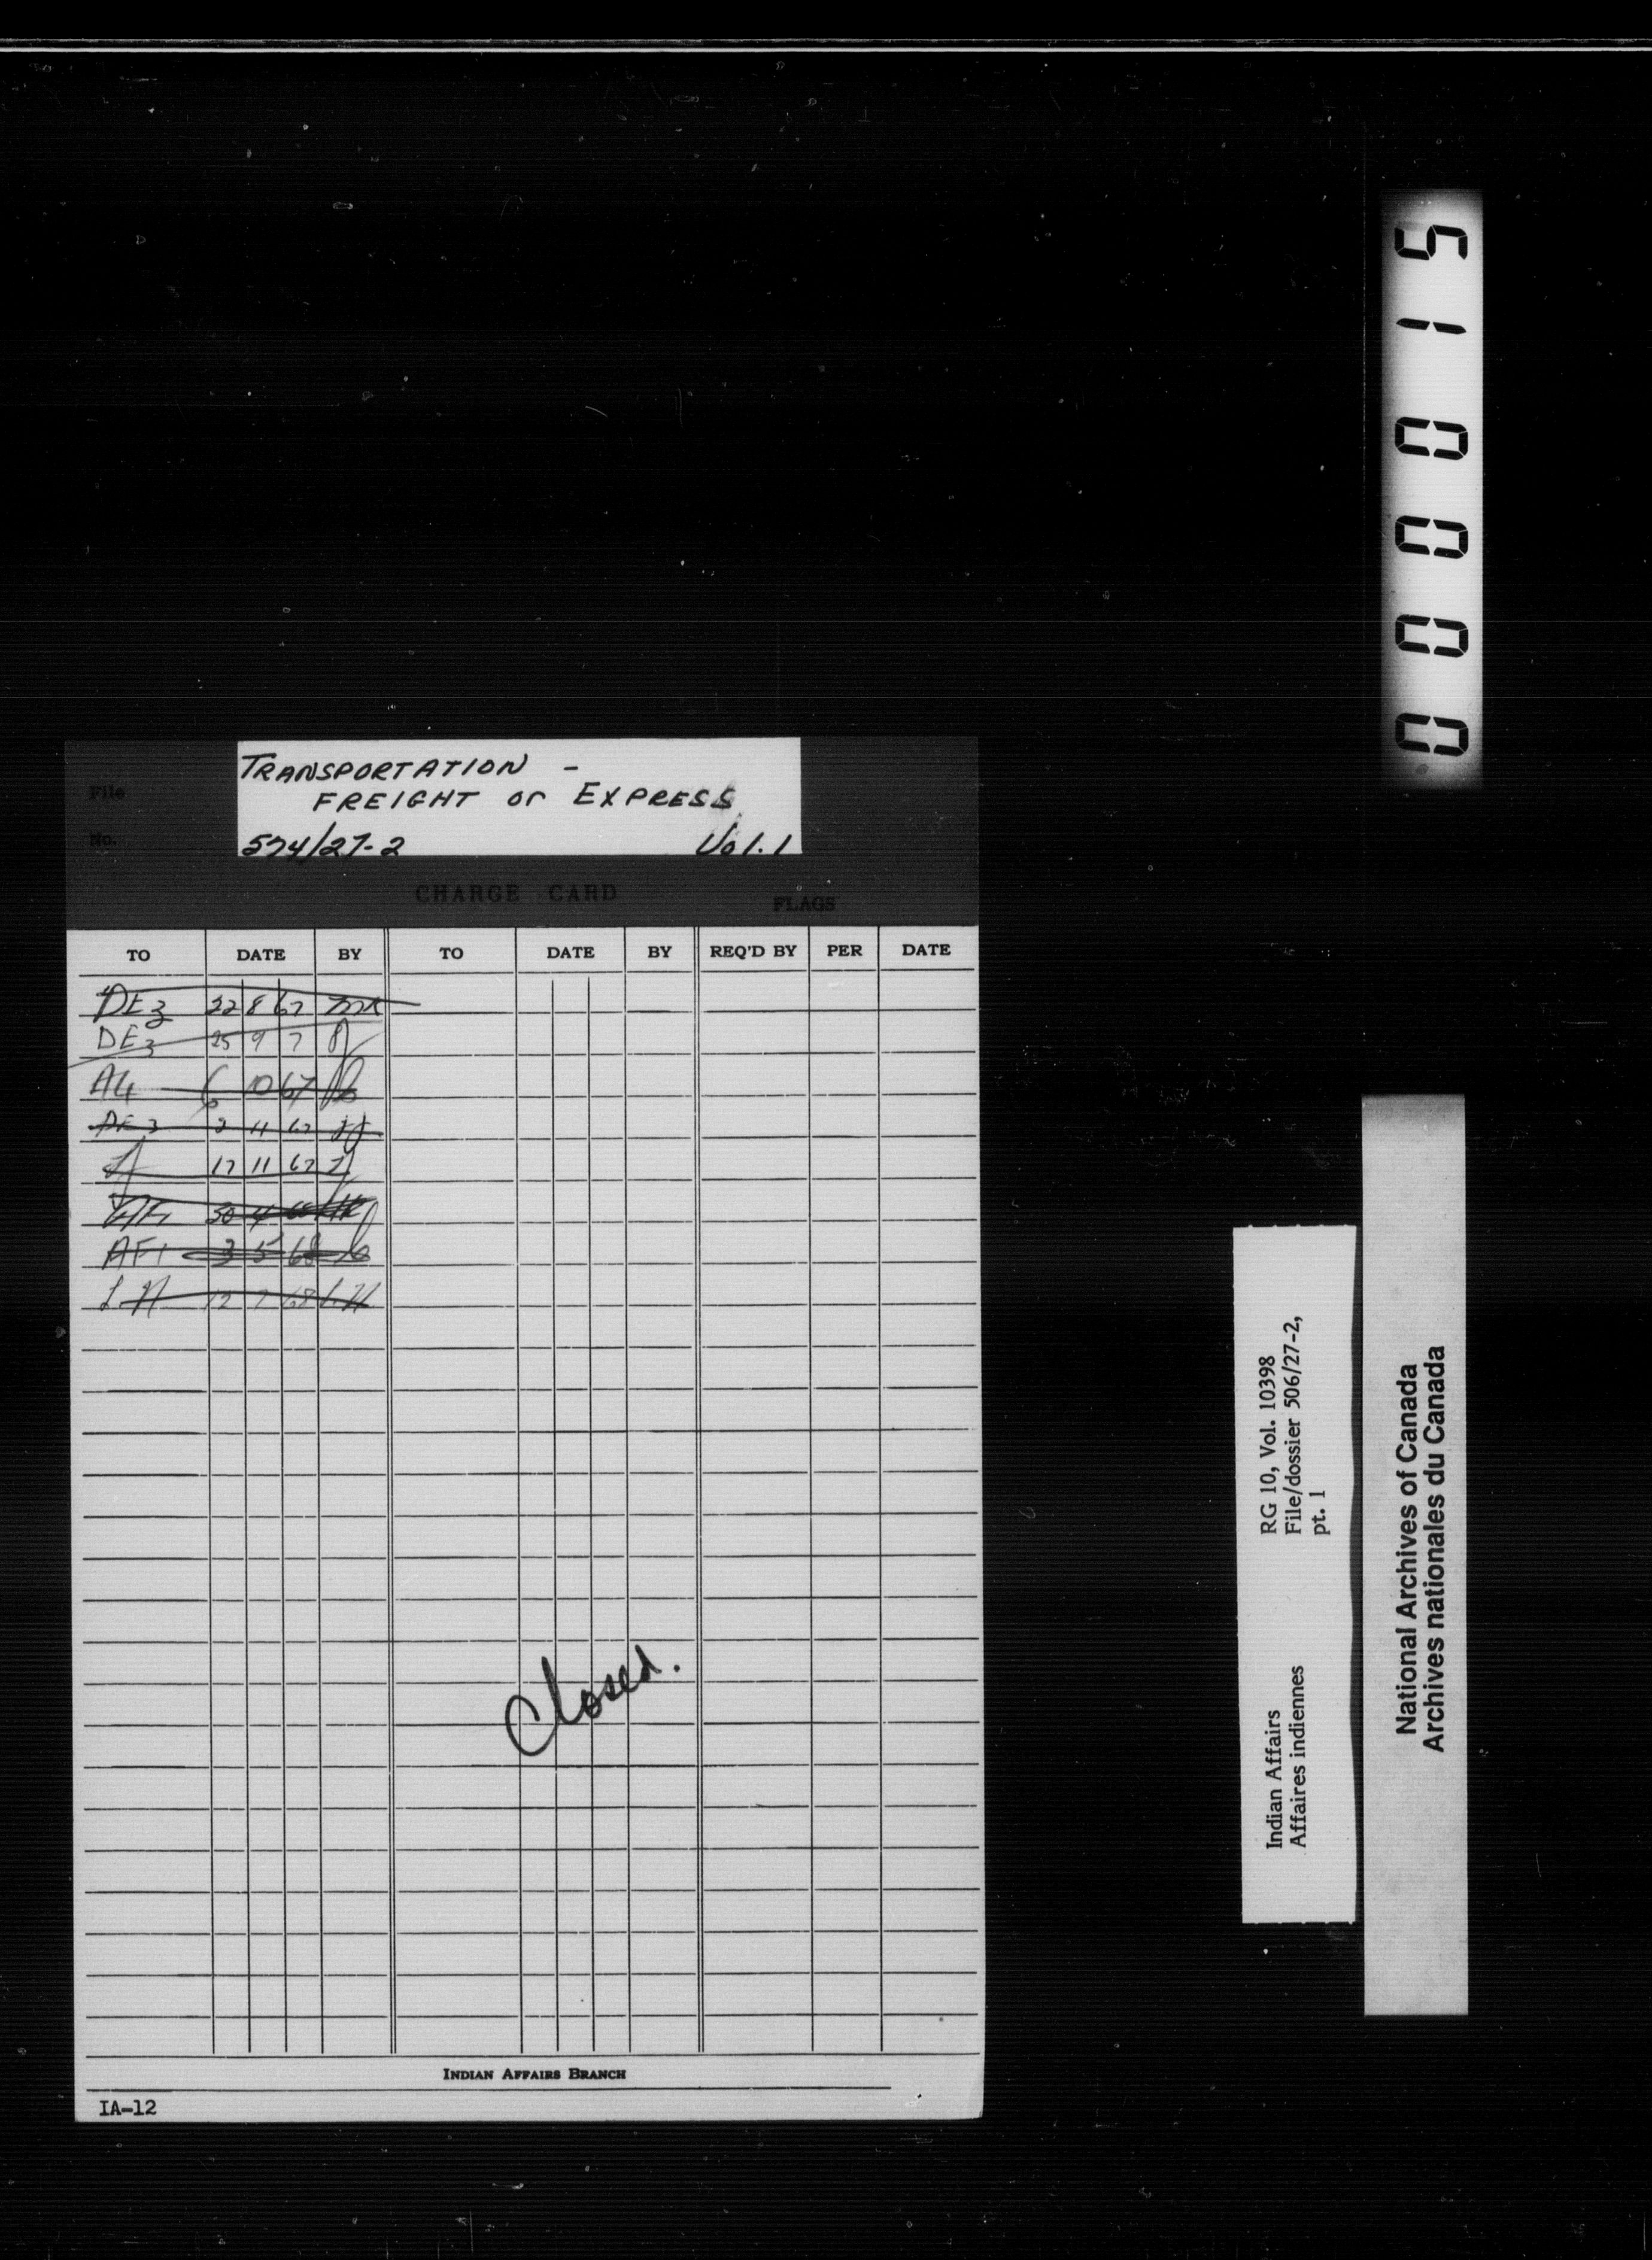 File
TRANSPORTATION -
FREIGHT or EXPRESS
No.
574/27-2 Vol. 1
CHARGE CARD
FLAGS
TO DATE BY TO DATE BY REQ'D BY PER DATE
DE3 22 8 67
DE3 25 9 7
A4 6 10 67
DE3 2 11 67
17 11 67
30 4 68
AF1 3 5 68
LH 12 7 68 LH
Closed.
INDIAN AFFAIRS BRANCH
IA-12
000015
Indian Affairs
Affaires indiennes
RG 10, Vol. 10398
File/dossier 506/27-2,
pt. 1
National Archives of Canada
Archives nationales du Canada